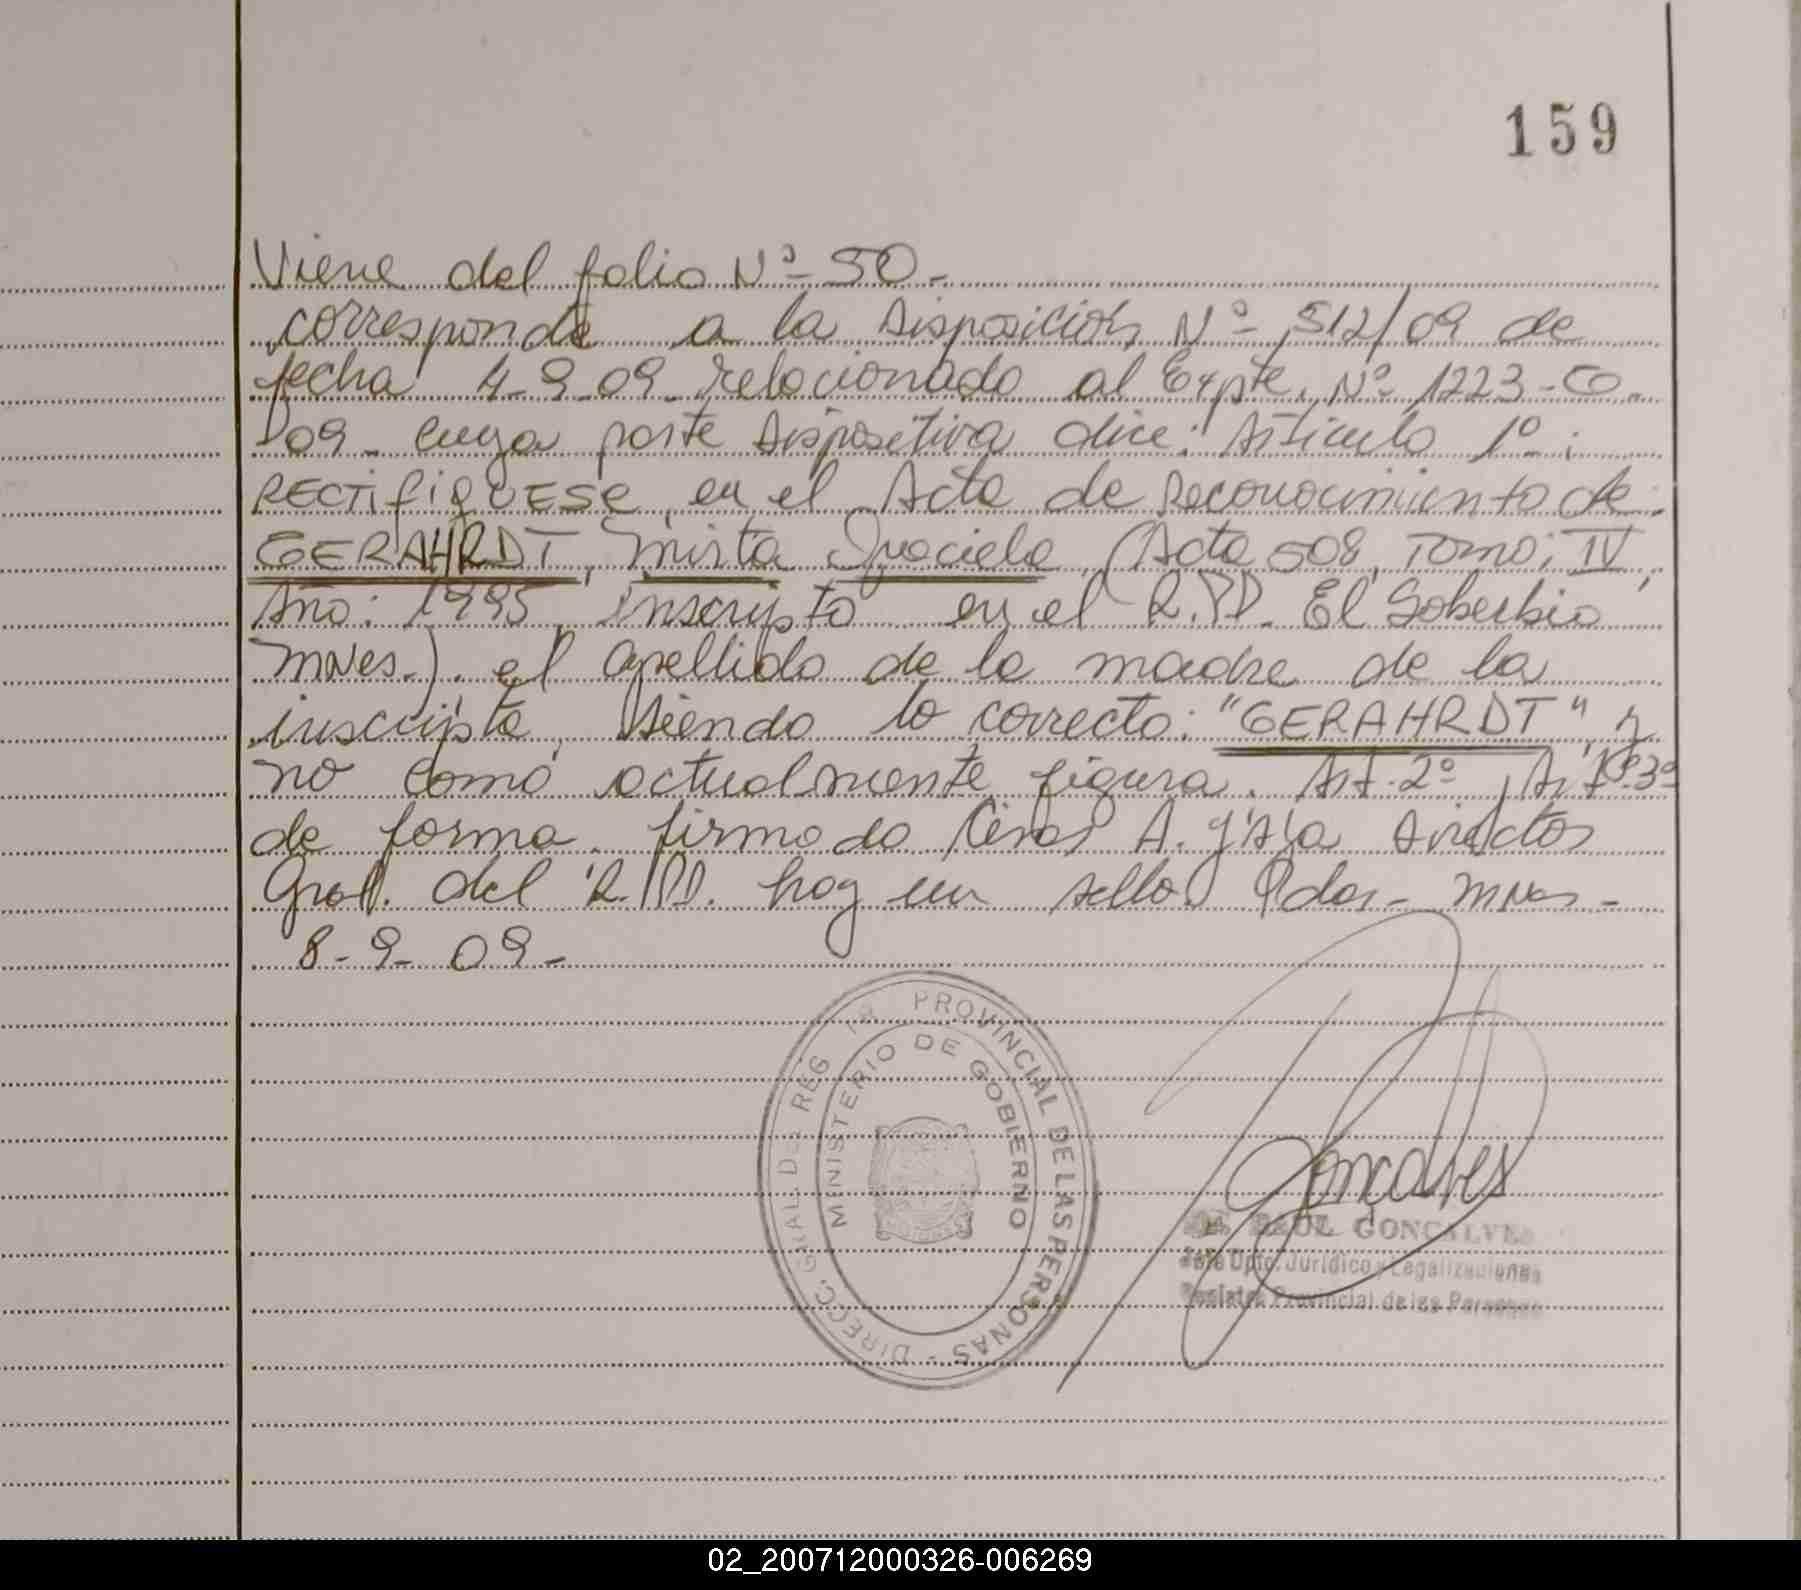 159
Viene del folio Nº 50-
corresponde a la disposición Nº 512/09 de
fecha 4-9-09 relacionado al Expte. Nº 1223-CO-
09- cuya parte dispositiva dice: Artículo 1º:
RECTIFIQUESE en el Acta de Reconocimiento de:
GERAHRDT, Mirta Graciela (Acta 508, Tomo: IV,
Año: 1995, inscripto en el R.P.P. El Soberbio
Mnes.). el apellido de la madre de la
inscripta, siendo lo correcto: "GERAHRDT", y
no como actualmente figura. Art. 2º, Art. 3º
de forma. firmado A. Director
Gral. del R.P.P. hay un sello. Pdas- Mnes-
8-9-09-
DIRECC. GRAL. DEL REG PROVINCIAL DE LAS PERSONAS -
MINISTERIO DE GOBIERNO
Gonçalves
RAUL GONCALVES
Jefe Dpto. Jurídico y Legalizaciones
Registro Provincial de las Personas
02_200712000326-006269